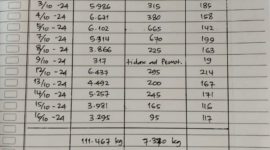 3/10 -24 5.986 315 185
4/10 -24 6.621 380 158
5/10 -24 6.102 665 142
7/10 -24 5.314 670 199
8/10 -24 3.866 225 163
9/10 -24 317 tidak ad Pemot. 19
12/10 -24 6.437 295 214
13/10 -24 4.492 200 167
14/10 -24 5.257 245 171
15/10 -24 3.981 165 116
16/10 -24 3.295 95 117
111.467 kg 7.370 kg